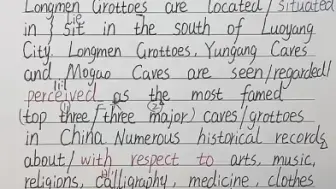 Longmen Grottoes are located/situated
in } sit in the south of Luoyang
lie
City. Longmen Grottoes, Yungang Caves
and Mogao Caves are seen/regarded/
perceived as the most famed
(top three/three major) caves/grottoes
in China. Numerous historical records
about/with respect to arts, music,
religions, calligraphy, medicine, clothes